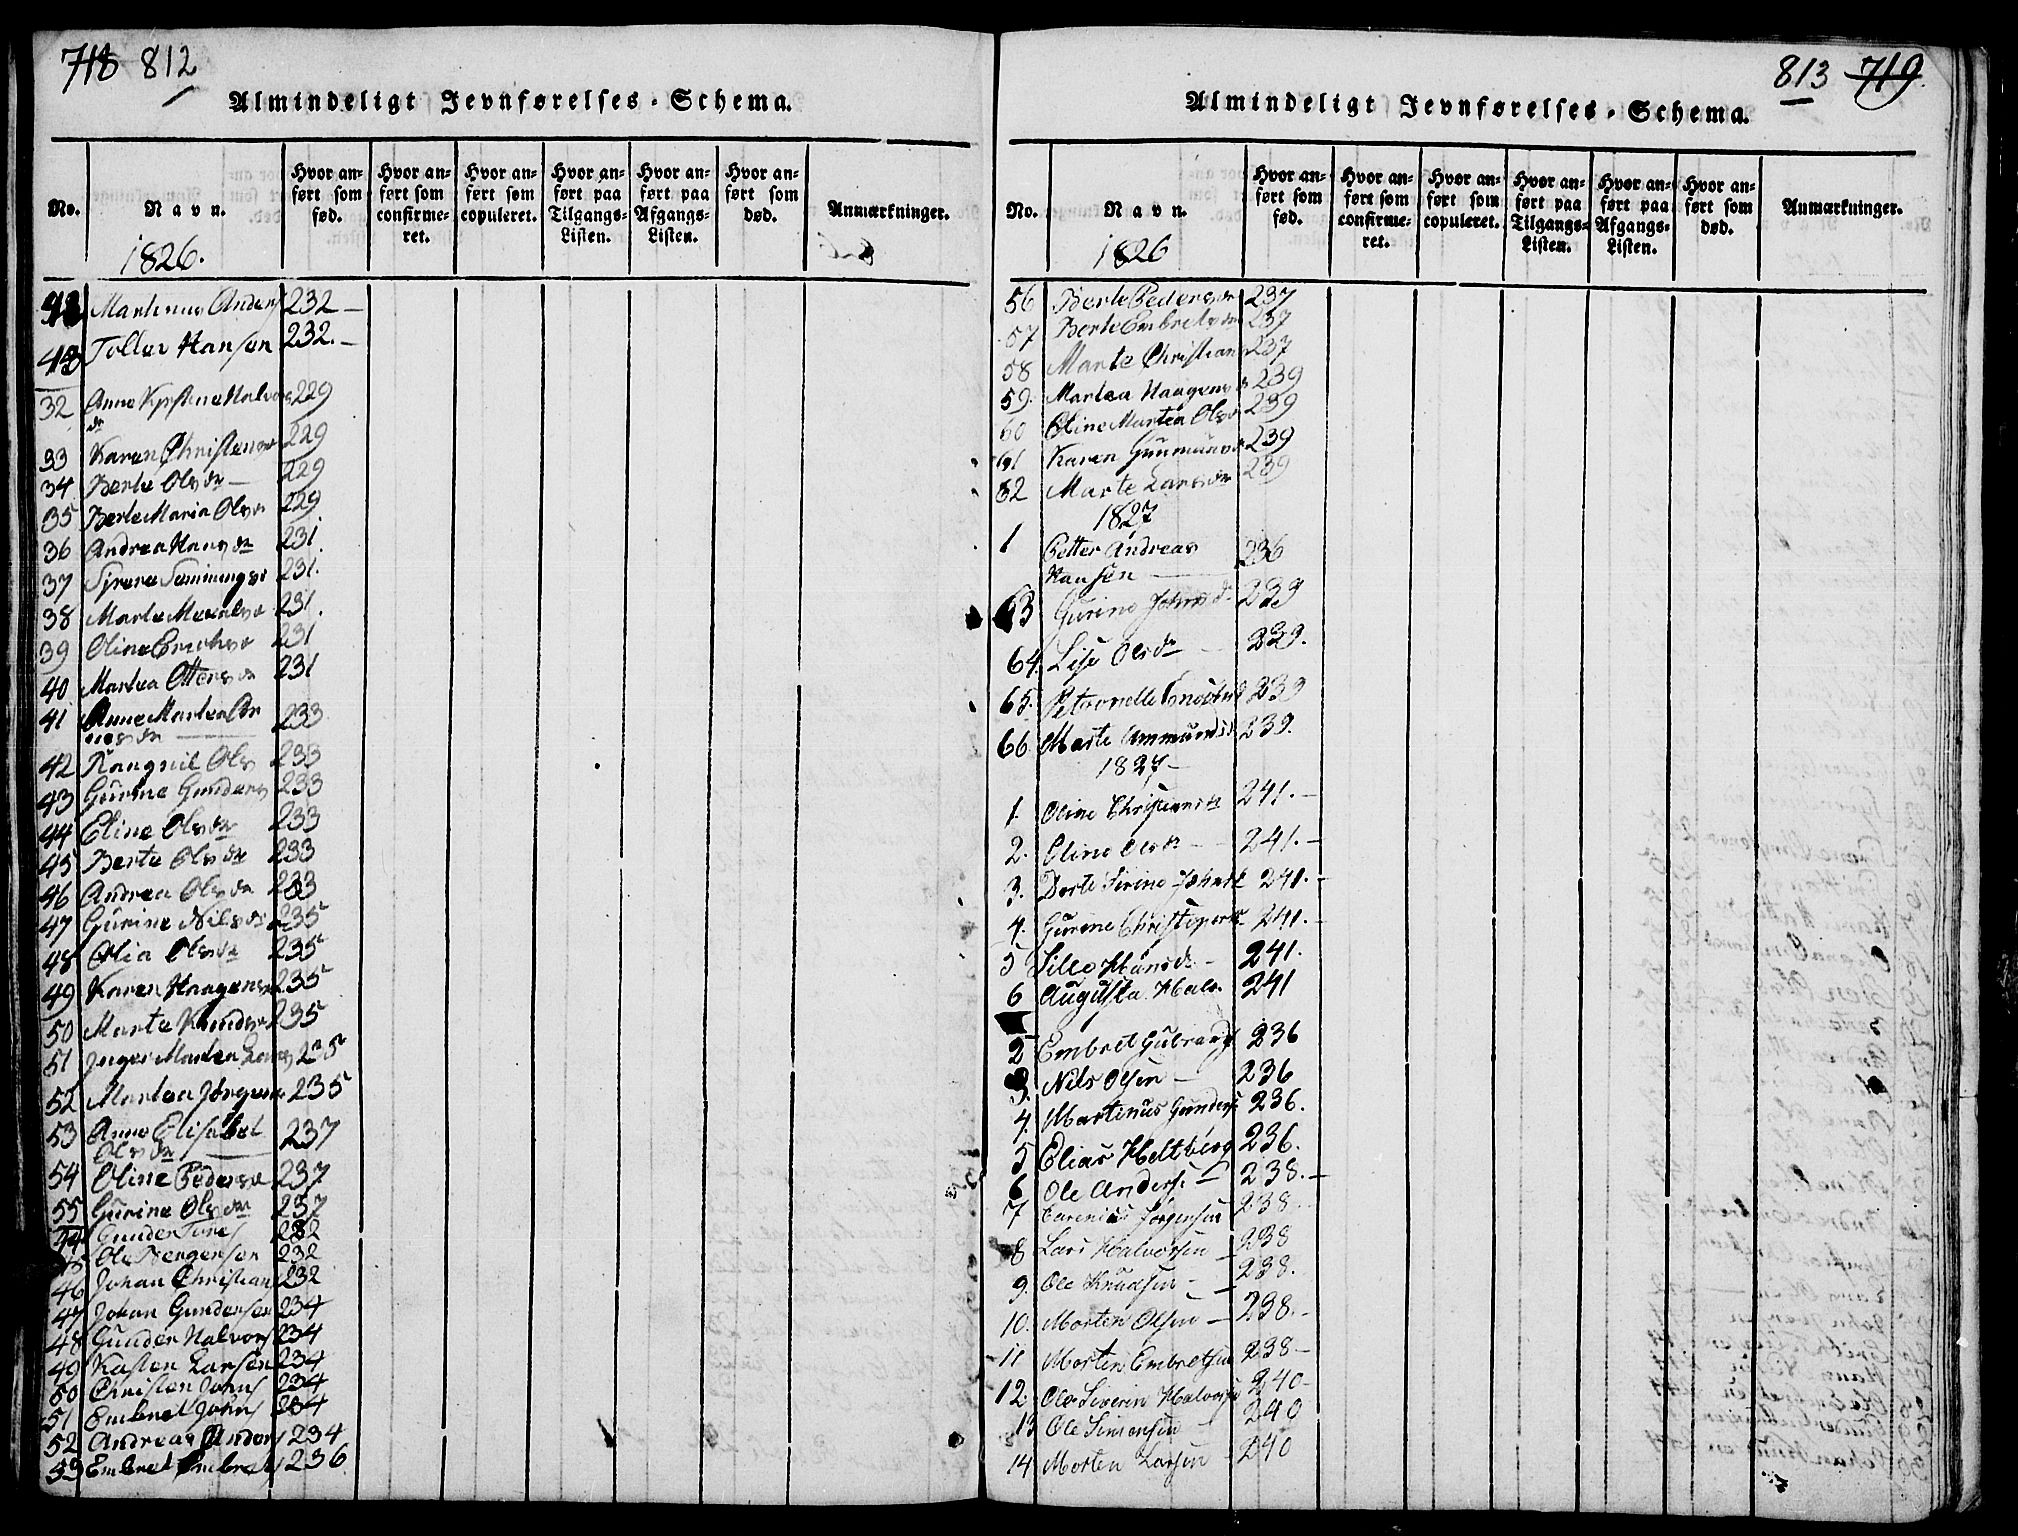 718 812
Almindeligt Jevnførelses-Schema.
No.
Navn.
Hvor an-
ført som
fød.
Hvor an-
ført som
confirme-
ret.
Hvor an-
ført som
copuleret.
Hvor an-
ført paa
Tilgangs-
Listen.
Hvor an-
ført paa
Afgangs-
Listen.
Hvor an-
ført som
død.
Anmærkninger.
1826.
42 Martinus Anders 232
43 Toller Hansen 232.
32 Anne Kjrstine Halvors 229
dr
33 Karen Christens dr 229
34 Berte Olsdr 229
35 Berte Maria Olsdr 229
36 Andrea Hansdr 231.
37 Syverine 231.
38 Marte 231.
39 Oline Erichsdr 231
40 Martea Ottersdr 231
41 Anne Martea 233
42 Rangnil Ols 233
43 Gurine Gunders 233
44 Eline Olsdr 233
45 Berte Olsdr 233
46 Andrea Olsdr 233
47 Gurine Nilsdr 235
48 Olia Olsdr 235
49 Karen Haagens 235
50 Marte Knudsdr 235
51 Inger Martea Lars 235
52 Martea Jörgens 235
53 Anne Elisabet 237
Olsdr
54 Oline Pedersdr 237
55 Gurine Olsdr 237
44 Gunder 232
45 Ole Bergersen 232
46 Johan Christian 232
47 Johan Gundersen 234
48 Gunder Halvors 234
49 Kasten Larsen 234
50 Christen Johns 234
51 Embret Johns 234
52 Andreas Anders 234
53 Embret Embrets 236
813 719.
Almindeligt Jevnførelses-Schema.
No.
Navn.
Hvor an-
ført som
fød.
Hvor an-
ført som
confirme-
ret.
Hvor an-
ført som
copuleret.
Hvor an-
ført paa
Tilgangs-
Listen.
Hvor an-
ført paa
Afgangs-
Listen.
Hvor an-
ført som
død.
Anmærkninger.
1826
56 Berte Pedersdr 237
57 Berte Embretsdr 237
58 Marte Christians 237
59. Martea Haagens 239
60 Oline Martea Ols 239
61 Karen Gunmunds 239
62 Marte Larsdr 239
1827
1 Petter Andreas
Hansen 236
63 Gurine Johnsd. 239
64. Lise Olsdr 239.
65. Petronelle 239
66. Marte Ammundsd 239.
1827
1. Oline Christiansdr 241.
2. Oline Olsdr 241.
3. Dorte Sirine Johnsdr 241.
4. Gurine Christophersdr 241.
5 Sille Hansdr 241.
6 Augusta Halv. 241
2 Embret Gulbrands 236
3. Nils Olsen 236
4. Martinus Gunders 236.
5 Elias Heltberg 236.
6 Ole Anders 238.
7 Jørgensen 238
8 Lars Halvorsen 238
9. Ole Knudsen 238.
10. Morten Olsen 238.
11 Morten Embretsen 238
12. Ole Siverin Halvors 240
13 Ole Simensen 240
14 Morten Larsen 240